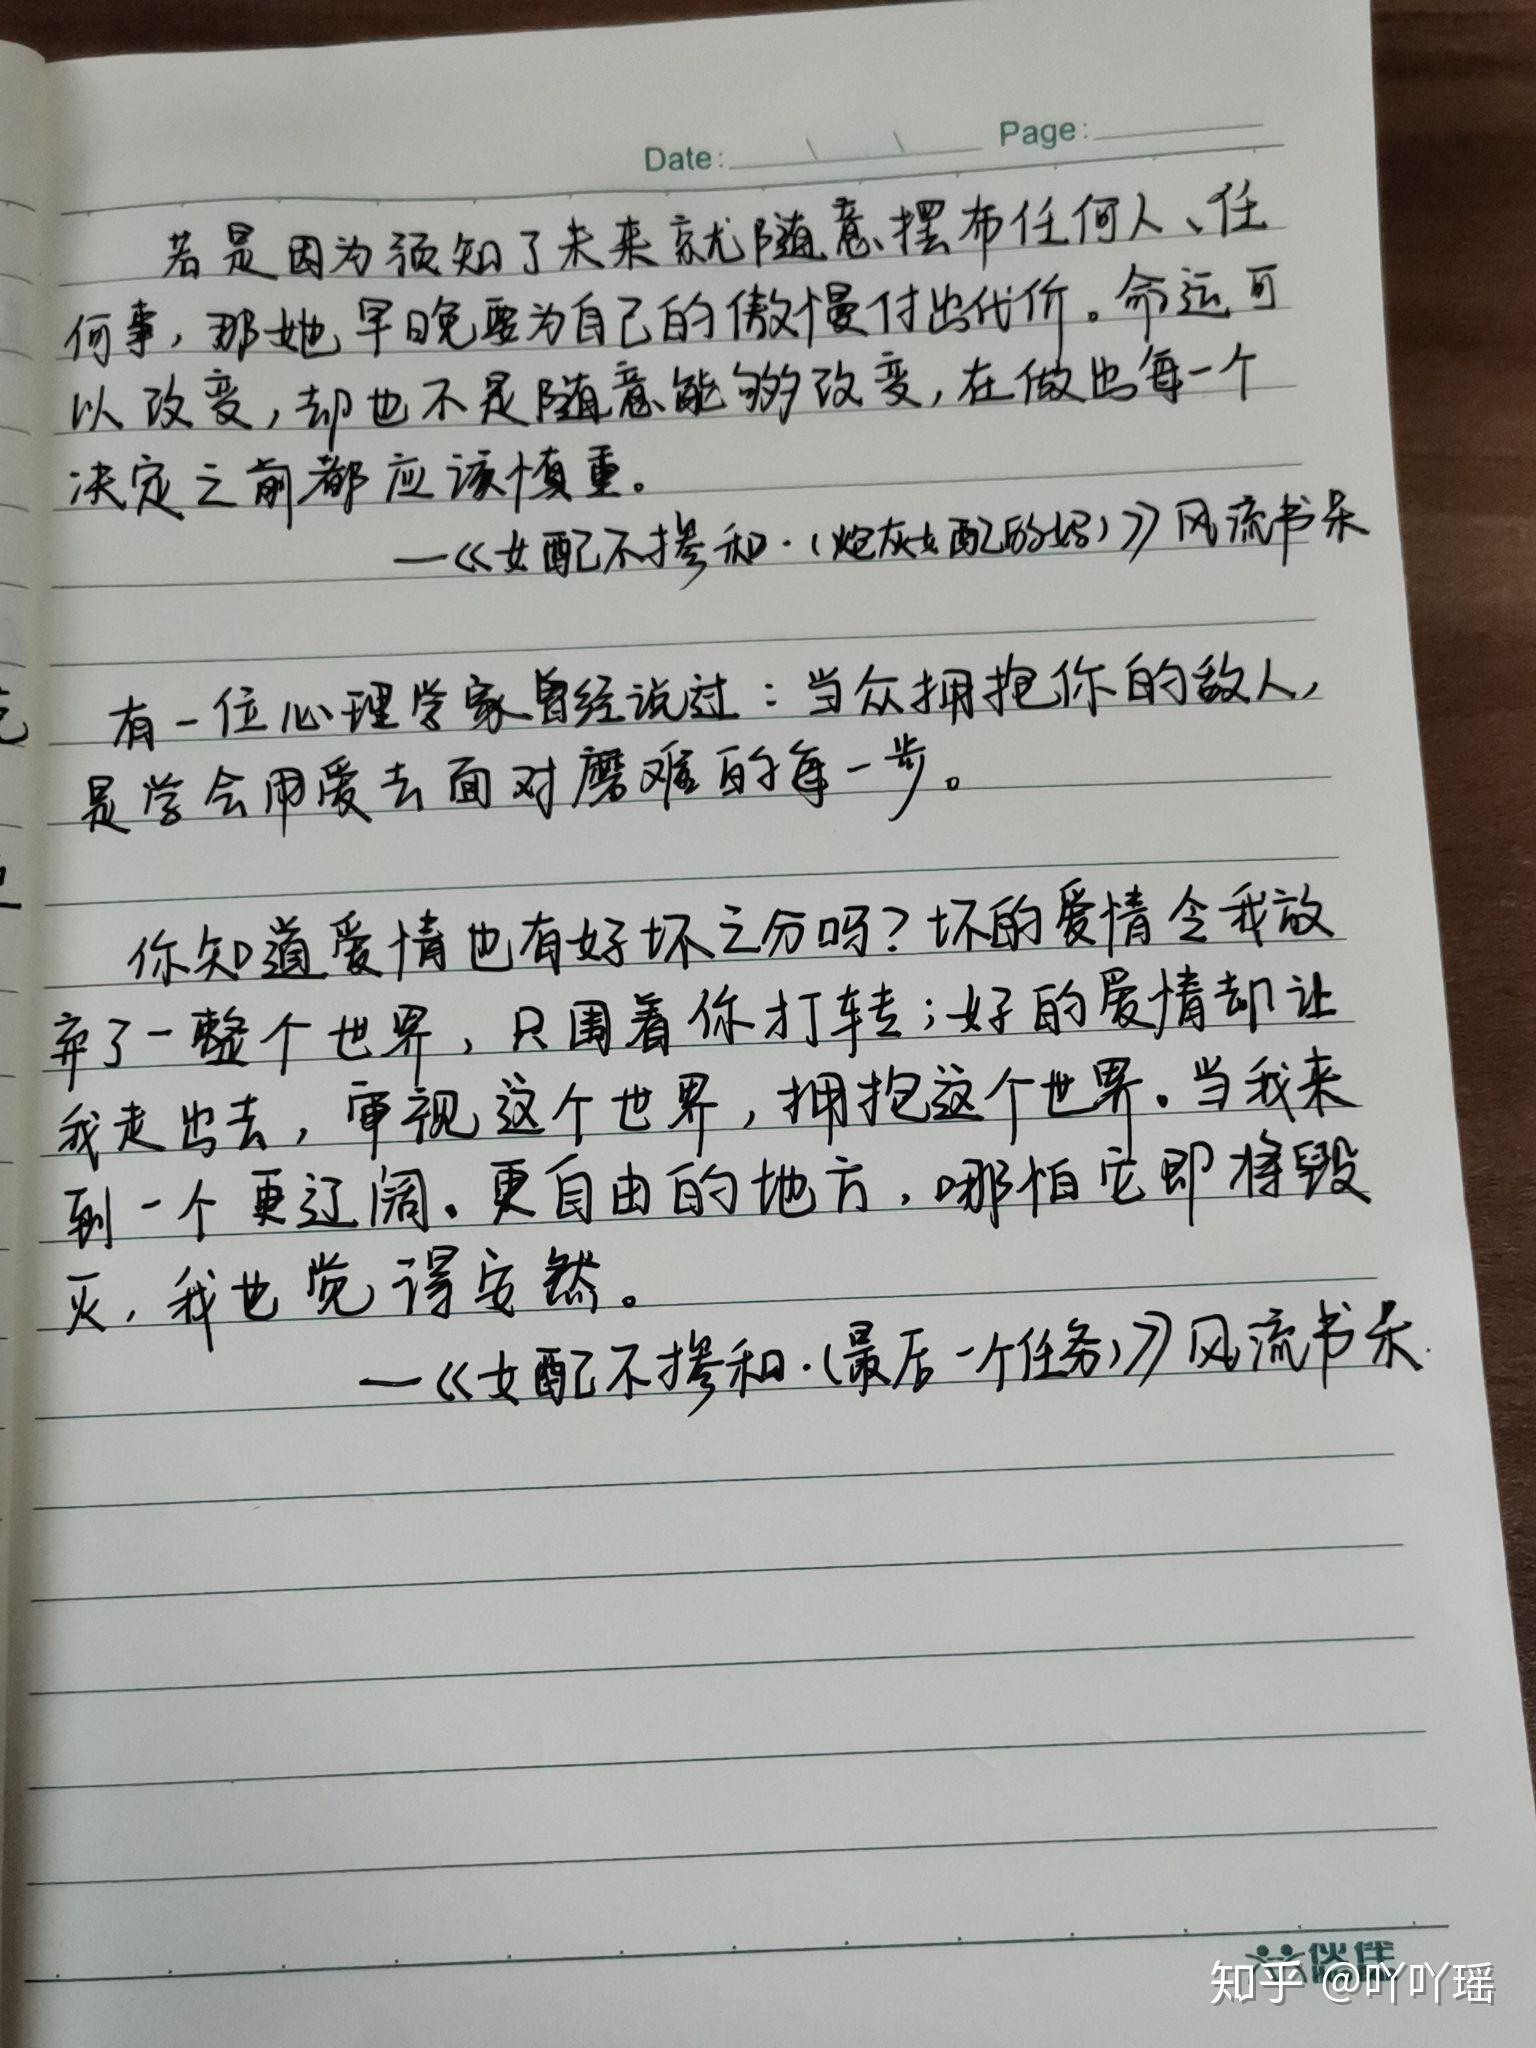 Date: Page:
若是因为须知了未来就随意摆布任何人、任
何事,那她早晚要为自己的傲慢付出代价。命运可
以改变,却也不是随意能够改变,在做出每一个
决定之前都应该慎重。
—《女配不掺和·(炮灰女配的妈)》风流书呆
有一位心理学家曾经说过:当众拥抱你的敌人,
是学会用爱去面对磨难的每一步。
你知道爱情也有好坏之分吗?坏的爱情令我放
弃了一整个世界,只围着你打转;好的爱情却让
我走出去,审视这个世界,拥抱这个世界。当我来
到一个更辽阔。更自由的地方,哪怕它即将毁
灭,我也觉得安然。
—《女配不掺和·(最后一个任务)》风流书呆.
知乎 @吖吖瑶